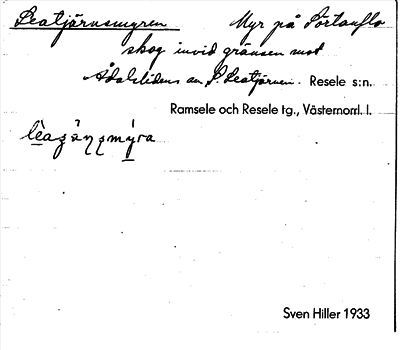 Leatjärnsmyren Myr på Sörtanflo
skog invid gränsen mot
Ådalslidens sn S. Leatjärnen. Resele s:n.
Ramsele och Resele tg., Västernorrl. l.
Sven Hiller 1933